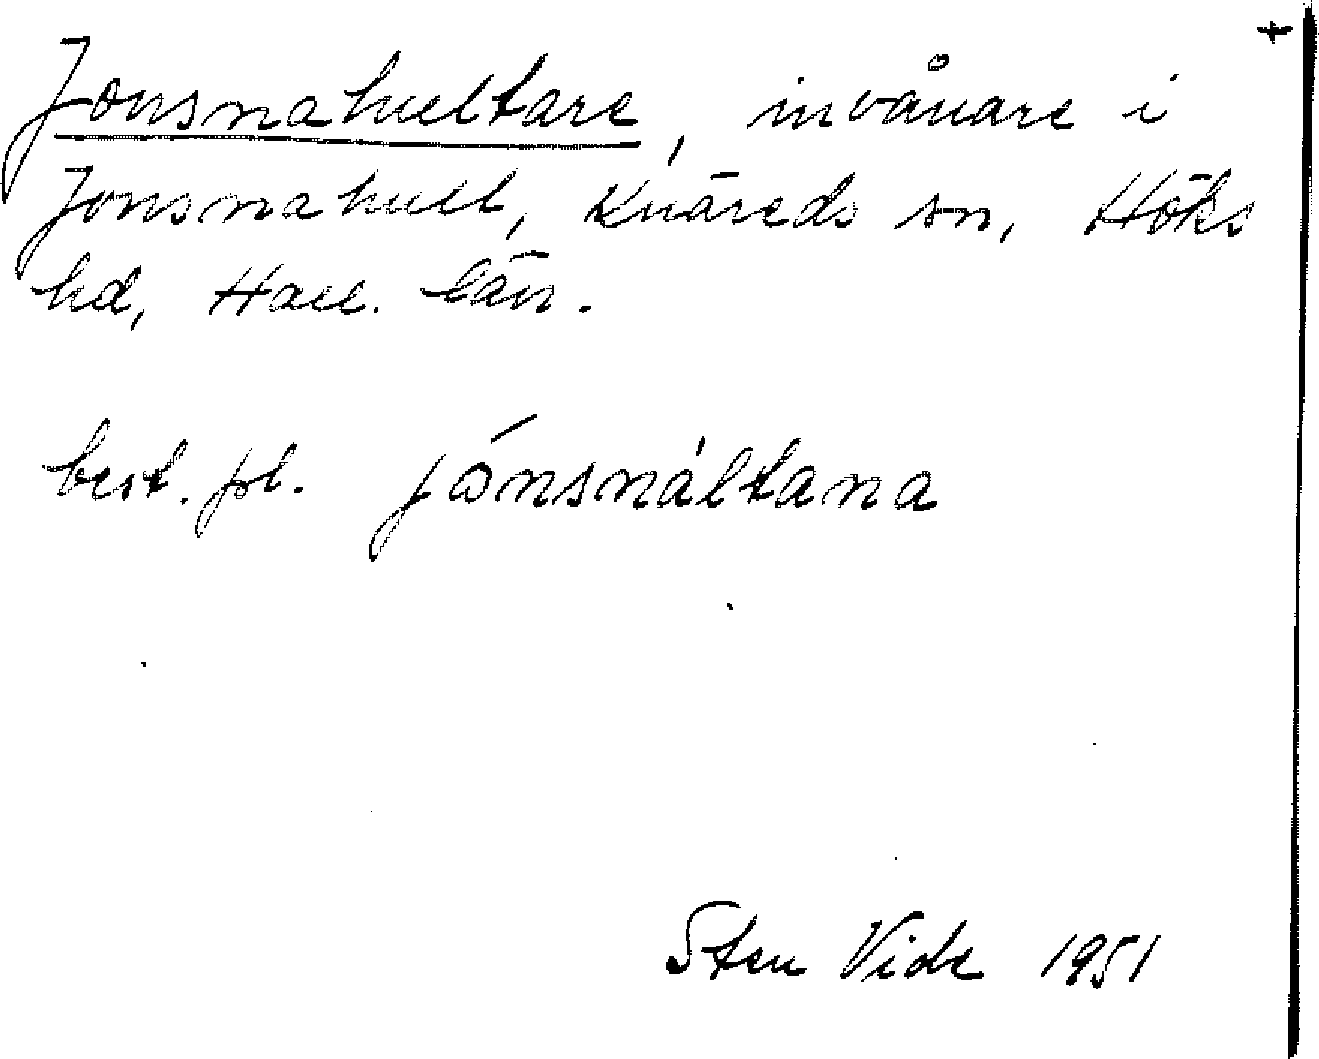 Jonsnahultare, invånare i
Jonsnahult, Knäreds sn, Höks
hd, Hall. län.
best. pl. jónsnáltana
Sten Vide 1951